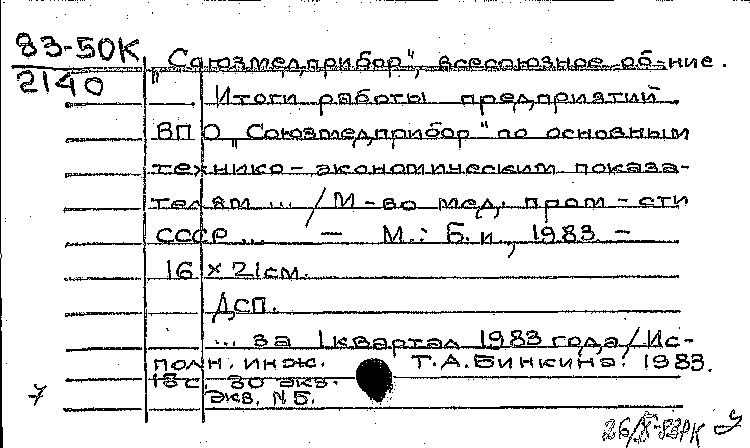 83-50К
2140
„Союзмедприбор", всесоюзное об-ние.
Итоги работы предприятий
ВПО „Союзмедприбор" по основным
технико-экономическим показа-
телям ... / М-во мед. пром-сти
СССР ... — М.: Б.и, 1983 -
16 × 21см.
ДСП.
... за I квартал 1983 года / Ис-
полн. инж. Т.А.Бинкина. 1983.
18с. 30 экз.
Экз. №5.
7